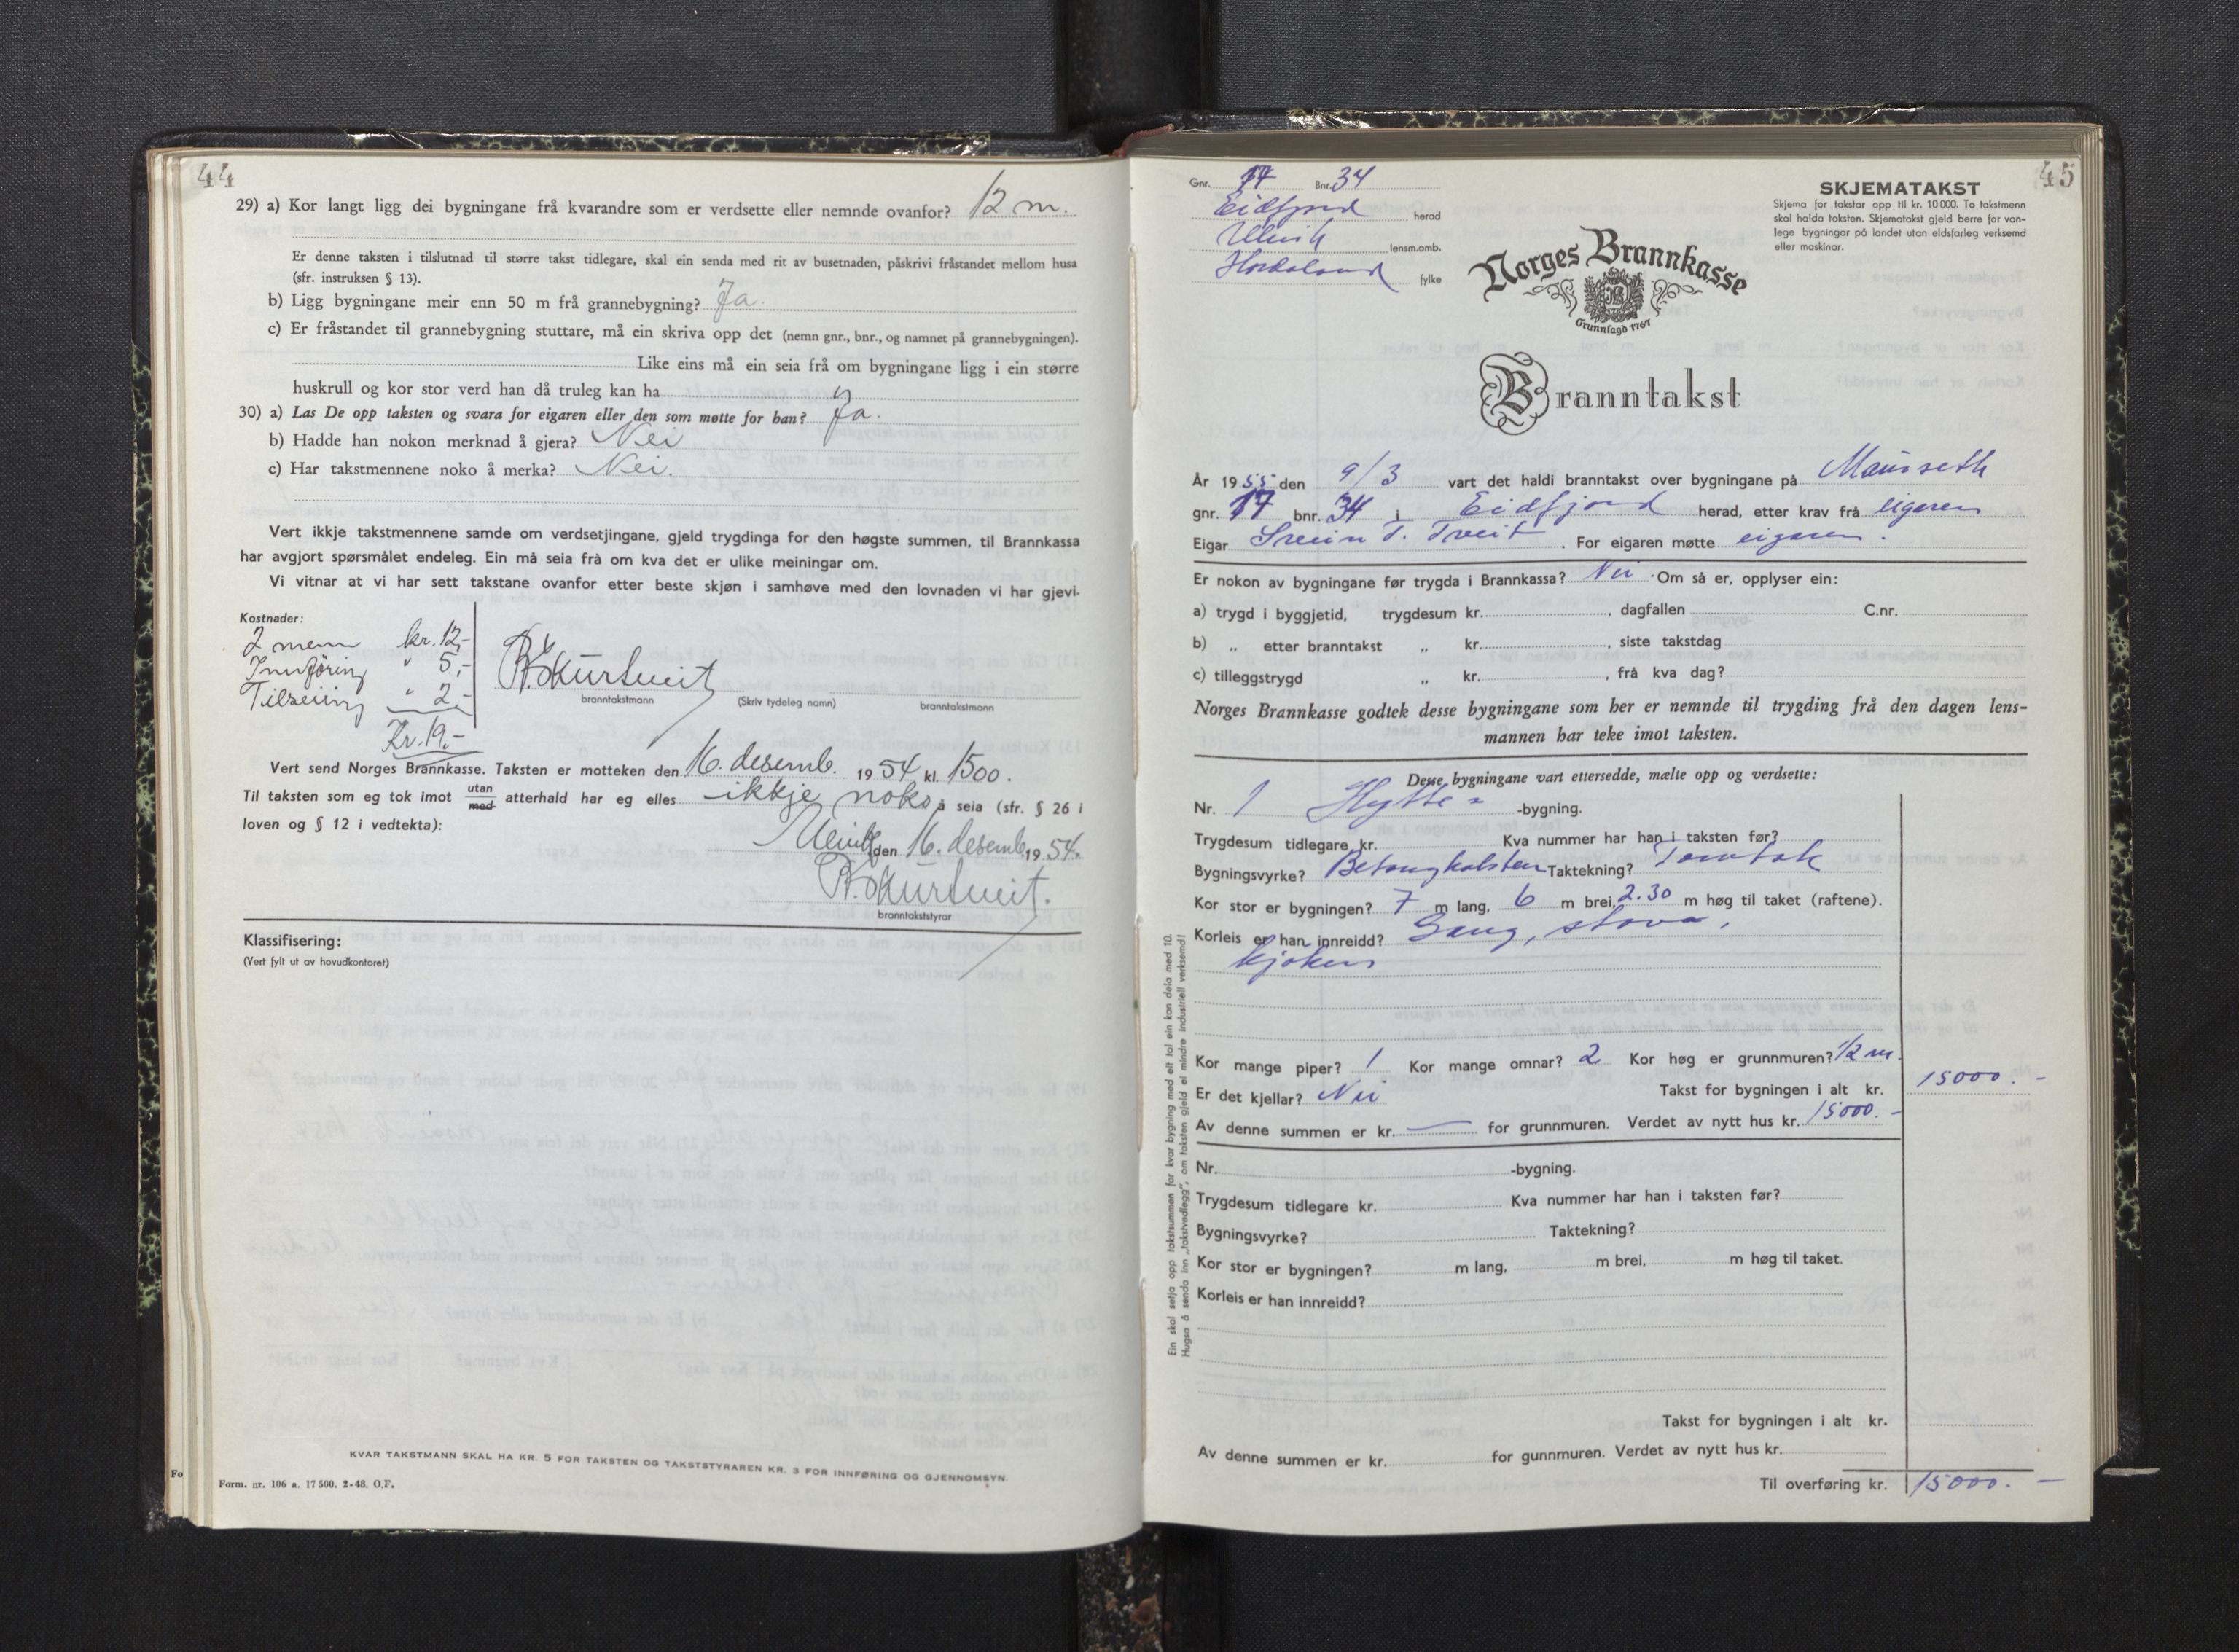 44
29) a) Kor langt ligg dei bygningane frå kvarandre som er verdsette eller nemnde ovanfor? 12 m.
Er denne taksten i tilslutnad til større takst tidlegare, skal ein senda med rit av busetnaden, påskrivi fråstandet mellom husa
(sfr. instruksen § 13).
b) Ligg bygningane meir enn 50 m frå grannebygning? Ja.
c) Er fråstandet til grannebygning stuttare, må ein skriva opp det (nemn gnr., bnr., og namnet på grannebygningen).
Like eins må ein seia frå om bygningane ligg i ein større
huskrull og kor stor verd han då truleg kan ha
30) a) Las De opp taksten og svara for eigaren eller den som møtte for han? Ja.
b) Hadde han nokon merknad å gjera? Nei
c) Har takstmennene noko å merka? Nei.
Vert ikkje takstmennene samde om verdsetjingane, gjeld trygdinga for den høgste summen, til Brannkassa
har avgjort spørsmålet endeleg. Ein må seia frå om kva det er ulike meiningar om.
Vi vitnar at vi har sett takstane ovanfor etter beste skjøn i samhøve med den lovnaden vi har gjevi.
Kostnader:
2 menn kr. 12,-
Innføring " 5,-
Tilseiing " 2,-
Kr. 19.-
branntakstmann (Skriv tydeleg namn) branntakstmann
Vert send Norges Brannkasse. Taksten er motteken den 16. desemb. 1954 kl. 1500.
Til taksten som eg tok imot utan/med atterhald har eg elles ikkje noko å seia (sfr. § 26 i
loven og § 12 i vedtekta):
Ulvik den 16. desemb. 1954.
branntakststyrar
Klassifisering:
(Vert fylt ut av hovudkontoret)
KVAR TAKSTMANN SKAL HA KR. 5 FOR TAKSTEN OG TAKSTSTYRAREN KR. 3 FOR INNFØRING OG GJENNOMSYN.
Fo
Form. nr. 106 a. 17 500. 2-48. O.F.
45
Gnr. 17 Bnr. 34
Eidfjord herad
Ulvik lensm.omb.
Hordaland fylke
SKJEMATAKST
Skjema for takstar opp til kr. 10 000. To takstmenn
skal halda taksten. Skjematakst gjeld berre for van-
lege bygningar på landet utan eldsfarleg verksemd
eller maskinar.
Norges Brannkasse
Grunnlagd 1767
Branntakst
År 1955 den 9/3 vart det haldi branntakst over bygningane på Maurseth
gnr. 17 bnr. 34 i Eidfjord herad, etter krav frå eigaren
Eigar Svein T. Tveit. For eigaren møtte eigaren.
Er nokon av bygningane før trygda i Brannkassa? Nei. Om så er, opplyser ein:
a) trygd i byggjetid, trygdesum kr., dagfallen C.nr.
b) „ etter branntakst „ kr., siste takstdag
c) tilleggstrygd „ kr., frå kva dag?
Norges Brannkasse godtek desse bygningane som her er nemnde til trygding frå den dagen lens-
mannen har teke imot taksten.
Desse bygningane vart ettersedde, mælte opp og verdsette:
Nr. 1 Hytte- -bygning.
Trygdesum tidlegare kr. Kva nummer har han i taksten før?
Bygningsvyrke? Betonghalsten Taktekning? Torvtak
Kor stor er bygningen? 7 m lang, 6 m brei, 2.30 m høg til taket (raftene).
Korleis er han innreidd? Gang, stova,
kjøken
Kor mange piper? 1 Kor mange omnar? 2 Kor høg er grunnmuren? 1/2 m.
Er det kjellar? Nei Takst for bygningen i alt kr. 15000.-
Av denne summen er kr. — for grunnmuren. Verdet av nytt hus kr. 15000.-
Nr. -bygning.
Trygdesum tidlegare kr. Kva nummer har han i taksten før?
Bygningsvyrke? Taktekning?
Kor stor er bygningen? m lang, m brei, m høg til taket.
Korleis er han innreidd?
Takst for bygningen i alt kr.
Av denne summen er kr. for gunnmuren. Verdet av nytt hus kr.
Til overføring kr. 15000.-
Ein skal setja opp takstsummen for kvar bygning med eit tal ein kan dela med 10.
Hugsa å senda inn „takstvedlegg", om taksten gjeld ei mindre industriell verksemd!